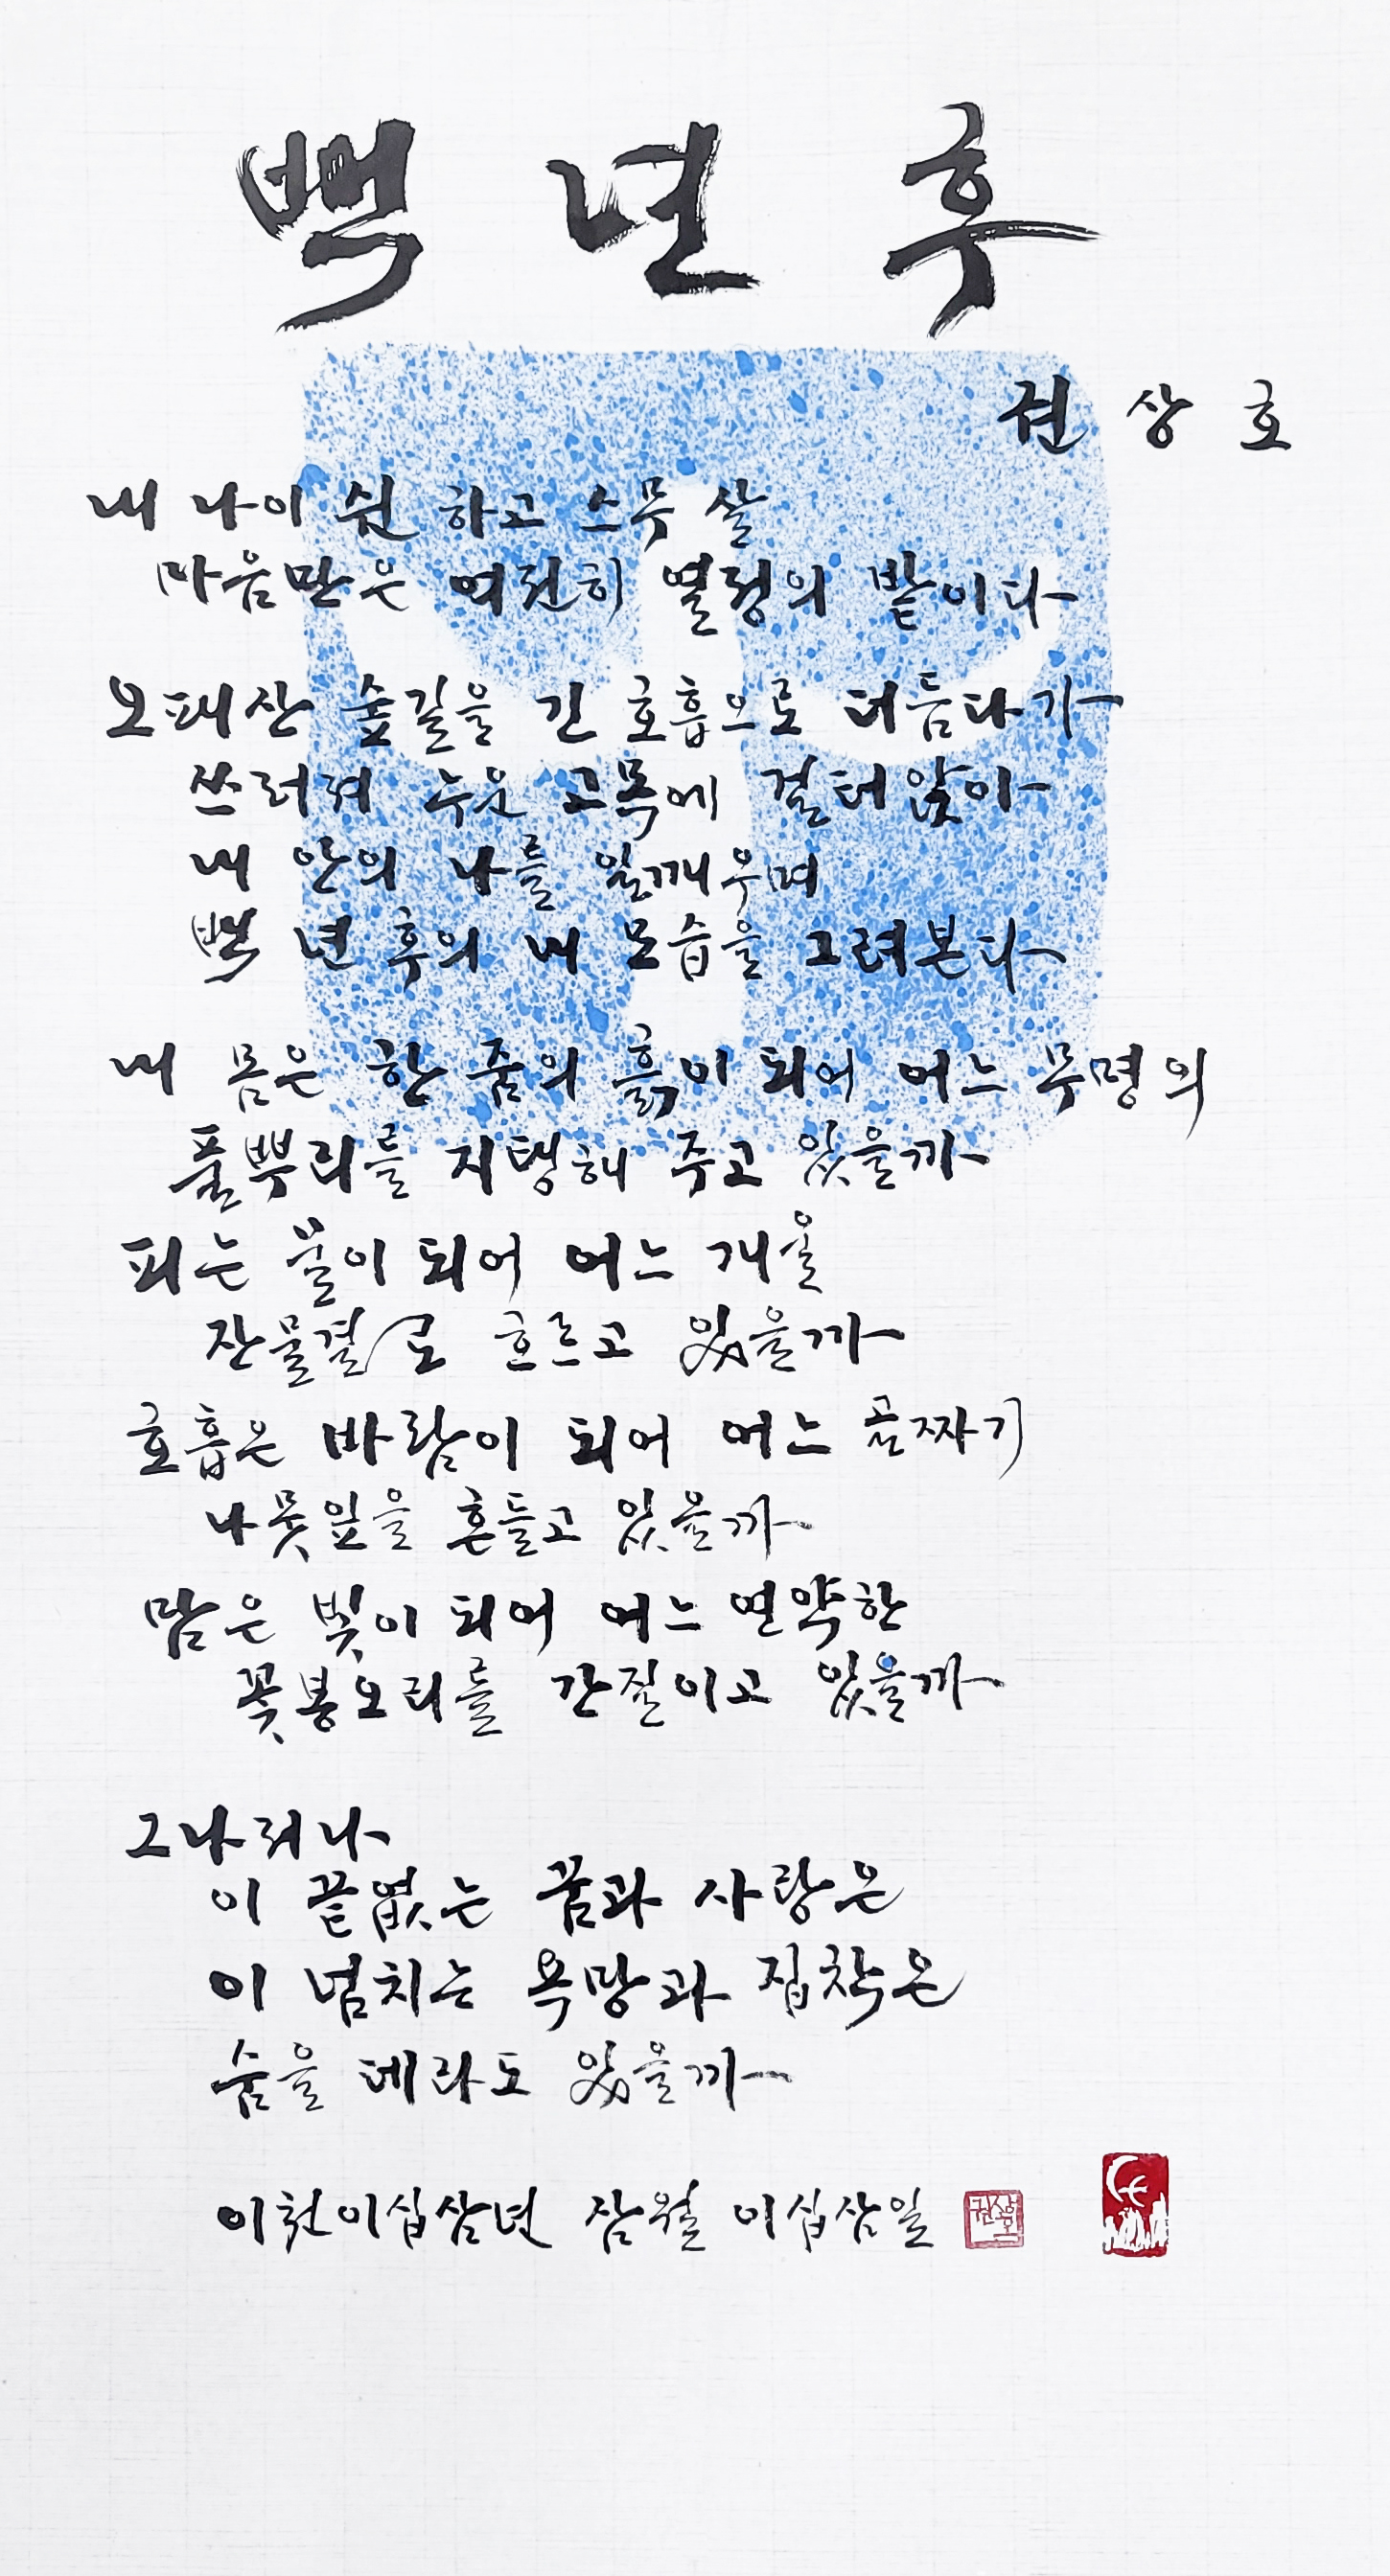 백 년 후
권 상 호
내 나이 쉰 하고 스무 살
마음만은 여전히 열정의 밭이다
오패산 숲길을 긴 호흡으로 더듬다가
쓰러져 누운 고목에 걸터앉아
내 안의 나를 일깨우며
백 년 후의 내 모습을 그려본다
내 몸은 한 줌의 흙이 되어 어느 무명의
풀뿌리를 지탱해 주고 있을까
피는 물이 되어 어느 개울
잔물결로 흐르고 있을까
호흡은 바람이 되어 어느 골짜기
나뭇잎을 흔들고 있을까
맘은 빛이 되어 어느 연약한
꽃봉오리를 간질이고 있을까
그나저나
이 끝없는 꿈과 사랑은
이 넘치는 욕망과 집착은
숨을 데라도 있을까
이천이십삼년 삼월 이십삼일
권상호